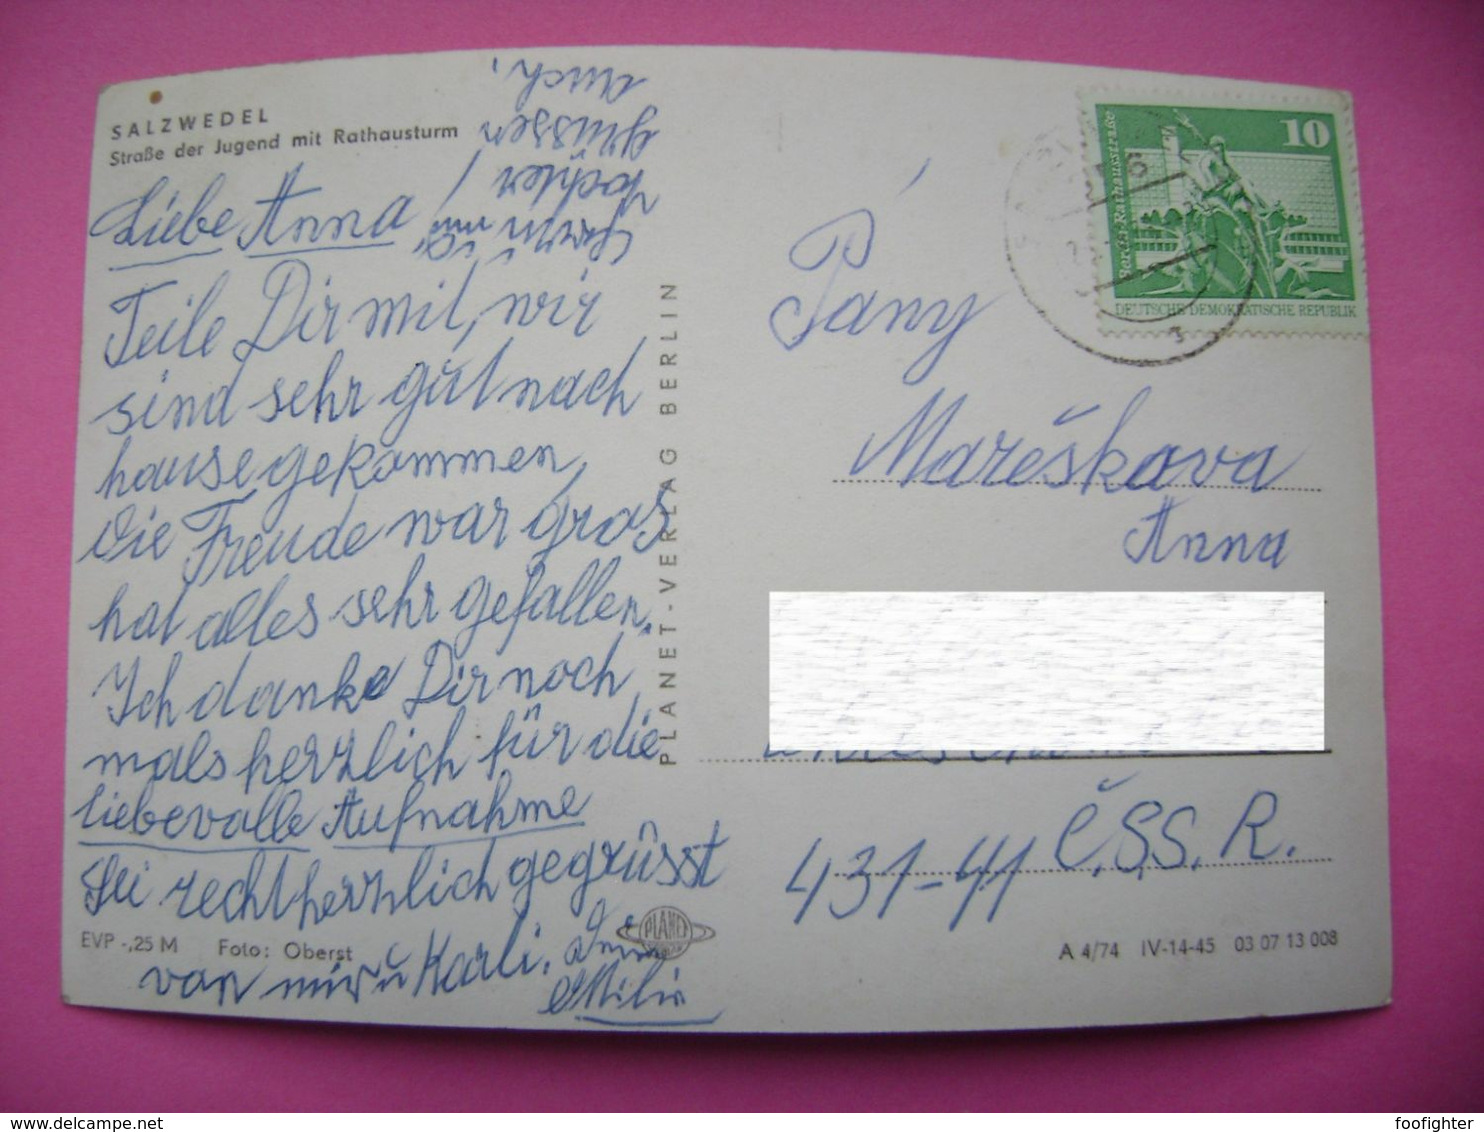 SALZWEDEL
Straße der Jugend mit Rathausturm
Liebe Anna
Teile Dir mit, wir
sind sehr gut nach
hause gekommen,
die Freude war gros
hat alles sehr gefallen.
Ich danke Dir noch
mals herzlich für die
liebevolle Aufnahme
Sei recht herzlich gegrüsst
von mir u Karli.
Tochter
grüssen
auch.
EVP -,25 M Foto: Oberst
PLANET-VERLAG BERLIN
PLANET
10
Berlin-Rathausstraße
DEUTSCHE DEMOKRATISCHE REPUBLIK
Pány
Mareškova
Anna
431-41 Č.S.S.R.
A 4/74 IV-14-45 03 07 13 008
foofighter
delcampe.net